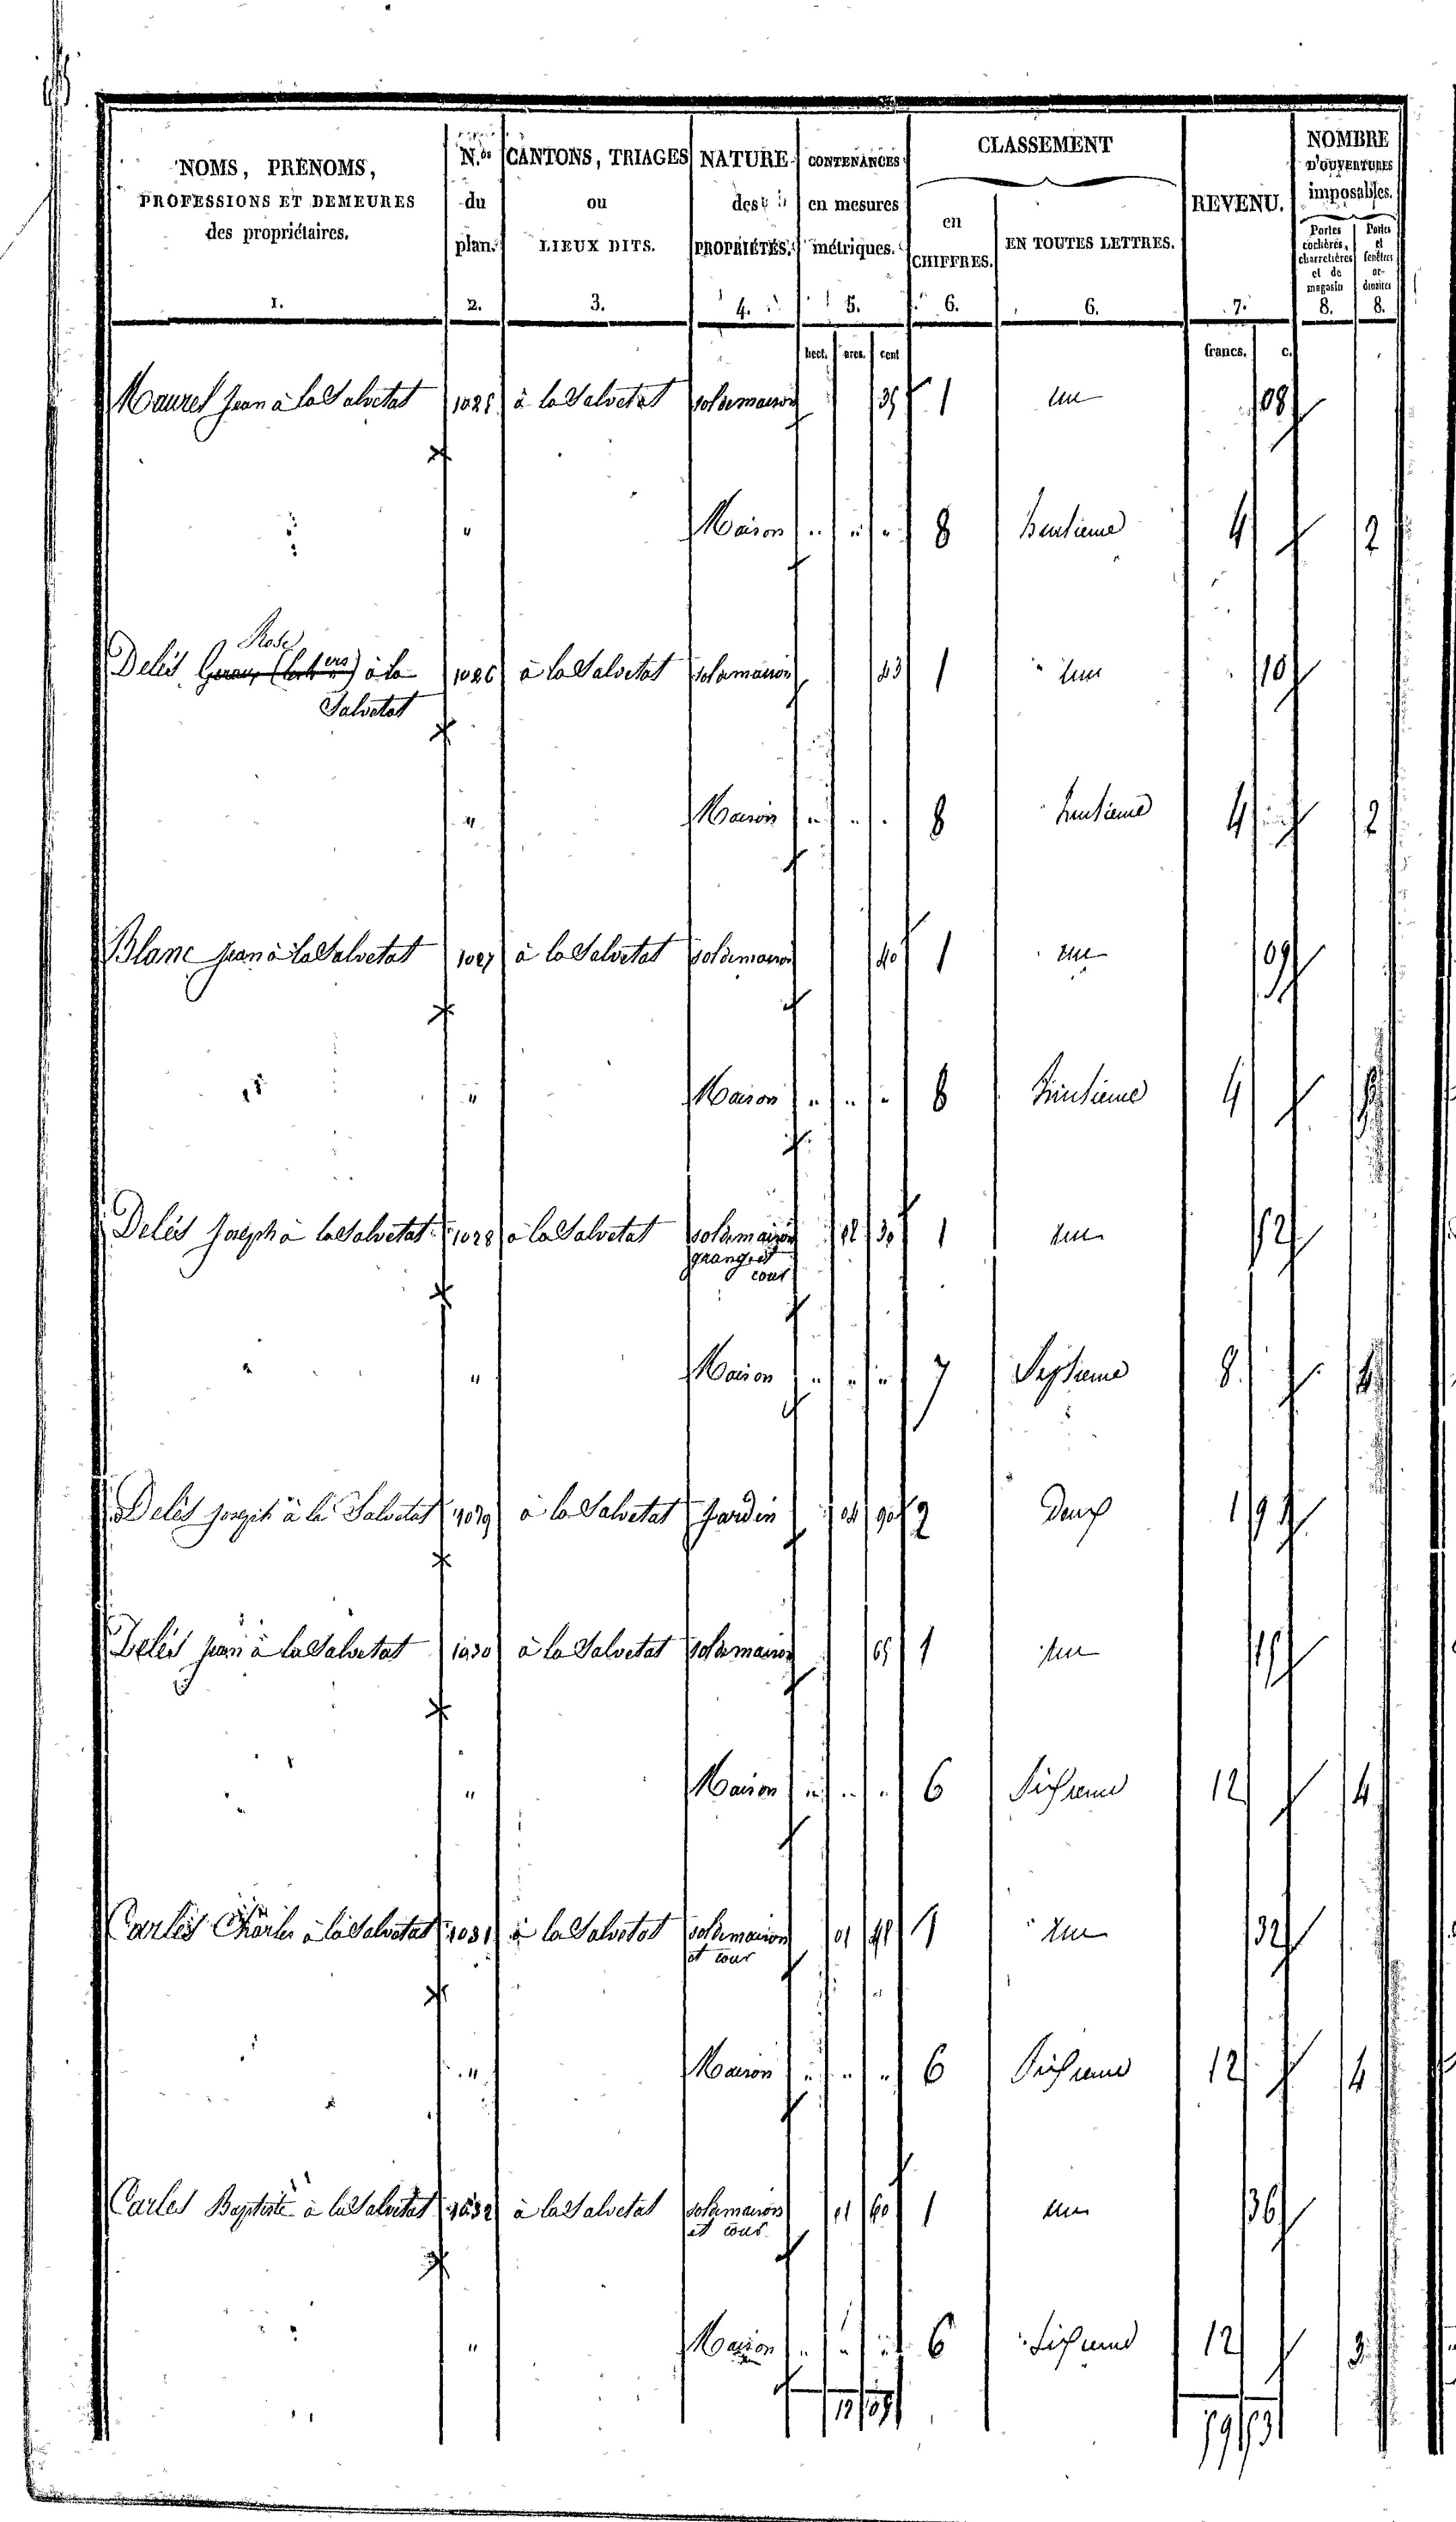 NOMS, PRÉNOMS, PROFESSIONS ET DEMEURES des propriétaires. N.os du plan. CANTONS, TRIAGES ou LIEUX DITS. NATURE des PROPRIÉTÉS. CONTENANCES en mesures métriques. CLASSEMENT en CHIFFRES. EN TOUTES LETTRES. REVENU. NOMBRE D'OUVERTURES imposables. Portes cochères, charretières et de magasin Portes et fenêtres ordinaires
1. 2. 3. 4. 5. 6. 6. 7. 8. 8.
hect. ares. cent francs. c.
Maurel Jean à la Salvetat 1025 à la Salvetat sol de maison 35 1 un 08
" Maison " " " 8 huitieme 4 2
Rose
Delès à la 1026 à la Salvetat sol de maison 43 1 un 10
Salvetat
" Maison " " " 8 huitieme 4 2
Blanc Jean à la Salvetat 1027 à la Salvetat sol de maison 40 1 un 09
" Maison " " " 8 huitieme 4
Delès Joseph à la Salvetat 1028 à la Salvetat sol de maison 02 30 1 un 52
grange et
cour
" Maison " " " 7 Septieme 8
Delès Joseph à la Salvetat 1029 à la Salvetat Jardin 04 90 2 Deux 1
Delès Jean à la Salvetat 1030 à la Salvetat sol de maison 65 1 un 15
" Maison " " " 6 Sixieme 12 4
Carles Charles à la Salvetat 1031 à la Salvetat sol de maison 01 41 1 un 32
et cour
" Maison " " " 6 Sixieme 12 4
Carles Baptiste à la Salvetat 1032 à la Salvetat sol de maison 01 60 1 un 36
et cour
" Maison " " " 6 Sixieme 12 3